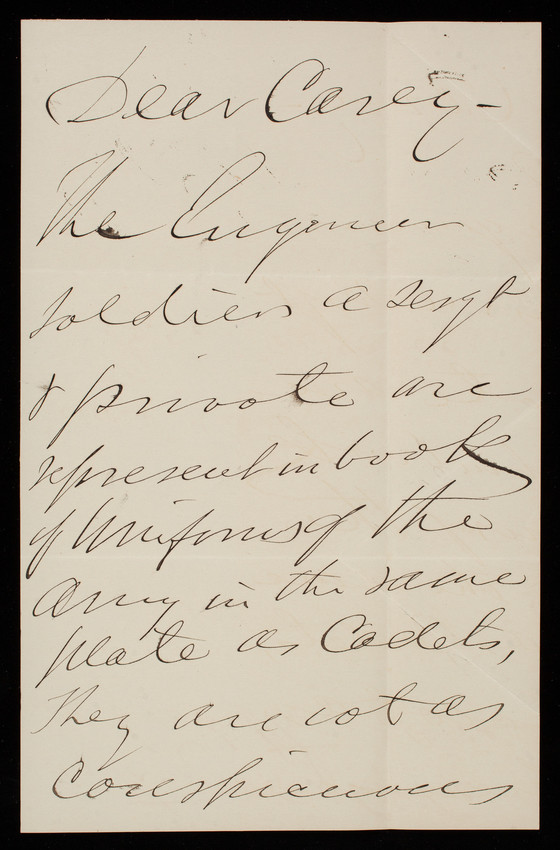 Dear Casey -
The Engineer
soldiers a sergt
& private are
represent in book
of Uniforms of the
army in the same
plate as Cadets,
They are not as
conspicuous